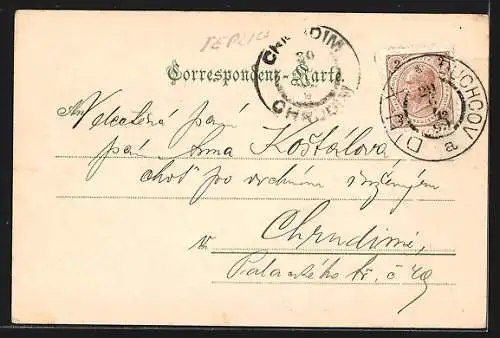 TEPLICE
CHRUDIM
CHRUDIM
Correspondenz-Karte.
DUX DUCHCOV
a
2 2
An Velectěná paní
paní Anna Košťálová
choť po vrchním inženýru
in Chrudimi,
Palackého tř. č 49